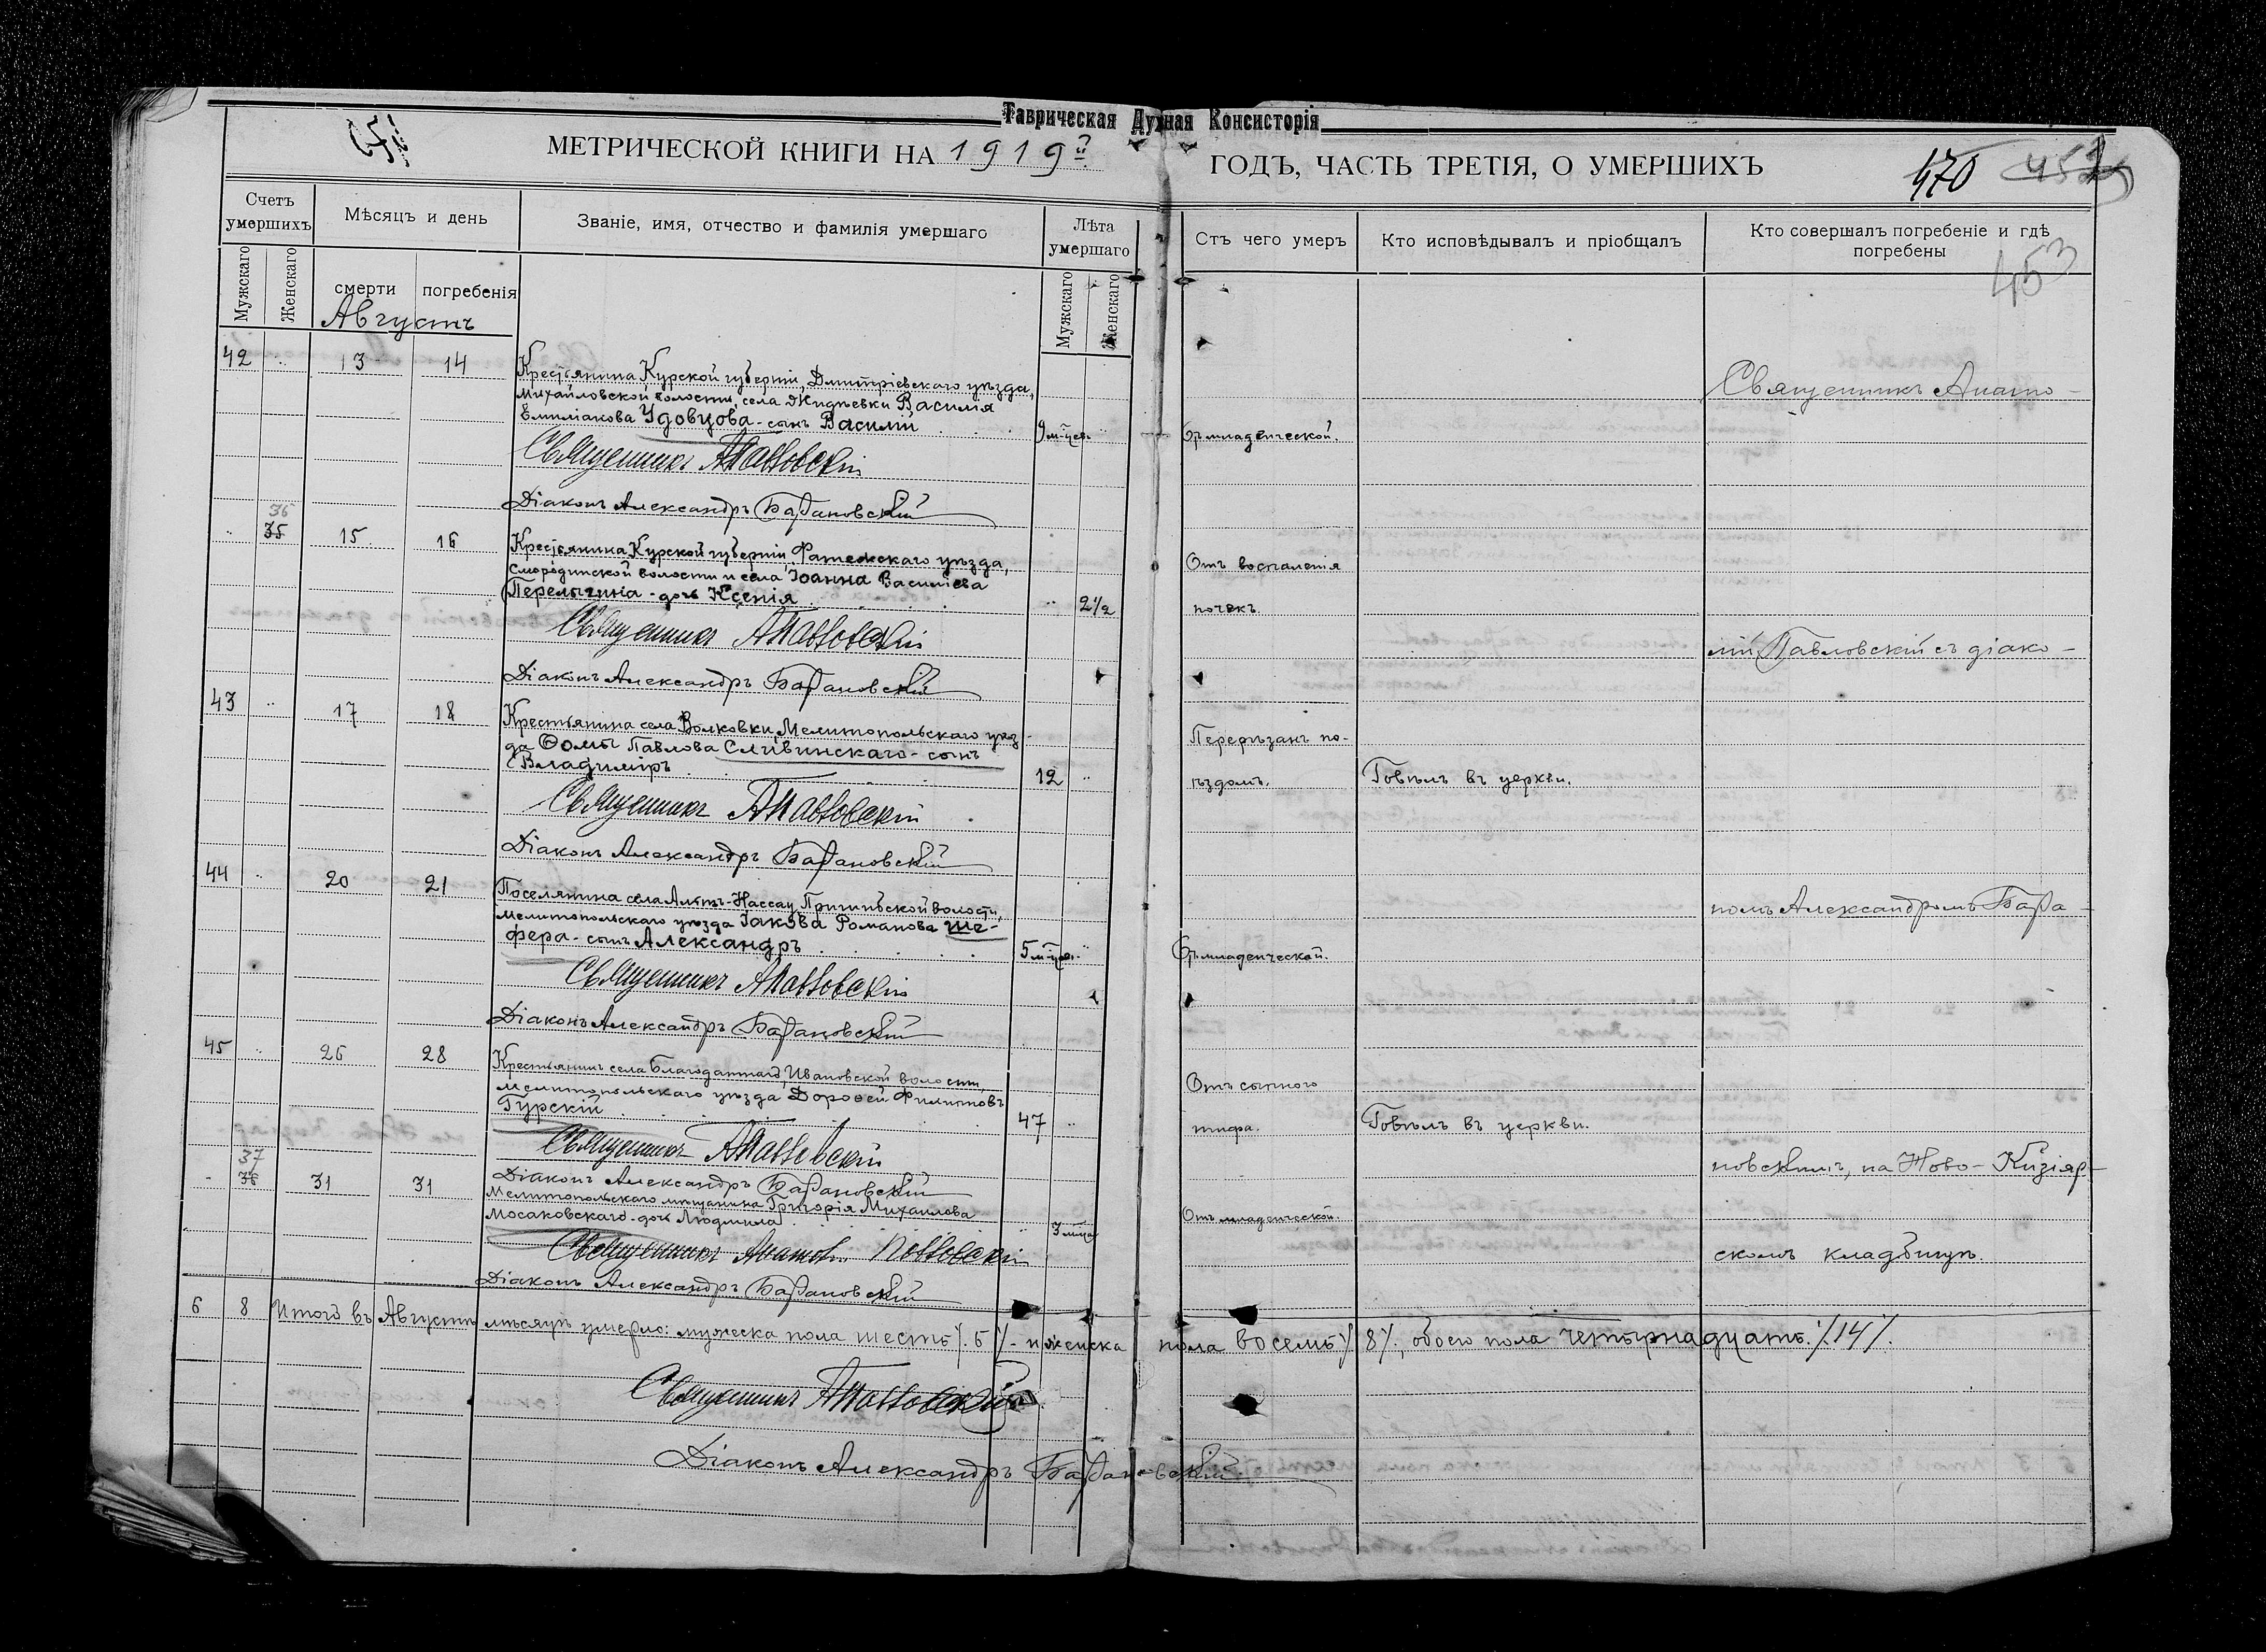 Таврическая Духная Консисторія
МЕТРИЧЕСКОЙ КНИГИ НА 1919й ГОДЪ, ЧАСТЬ ТРЕТІЯ, О УМЕРШИХЪ
470
453
Счетъ умершихъ
Мѣсяцъ и день
Званіе, имя, отчество и фамилія умершаго
Лѣта умершаго
Стъ чего умеръ
Кто исповѣдывалъ и пріобщалъ
Кто совершалъ погребеніе и гдѣ погребены
Мужскаго
Женскаго
смерти
погребенія
Мужскаго
Женскаго
Августъ
42 13 14
Крестьянина Курской губерніи, Дмитріевскаго уѣзда,
Михайловской волости, села Жидѣевки Василія
Емиліанова Удовцова - сынъ Василій
9 м-цев.
младенческой.
Священникъ Анато-
Священникъ АПавловскій
Діаконъ Александръ Барановскій
36
35 15 16
Крестьянина Курской губерніи Фатежскаго уѣзда,
Смородинской волости и села Іоанна Василіева
Перелыгина - дочь Ксенія
2½
Отъ воспаленія
почекъ.
Священникъ АПавловскій
лій Павловскій съ діако-
Діаконъ Александръ Барановскій
43 17 18
Крестьянина села Волковки, Мелитопольскаго уѣз-
да Ѳомы Павлова Сливинскаго - сынъ
Владиміръ
12
Перерѣзанъ по-
ѣздомъ.
Говѣлъ въ церкви.
Священникъ АПавловскій
Діаконъ Александръ Барановскій
44 20 21
Поселянина села Альтъ-Нассау, Пришибской волости,
Мелитопольскаго уѣзда Іакова Романова Ше-
фера - сынъ Александръ
5 м-цев.
младенческой.
номъ Александромъ Бара-
Священникъ АПавловскій
Діаконъ Александръ Барановскій
45 26 28
Крестьянинъ села Благодатнаго, Ивановской волости,
Мелитопольскаго уѣзда Дороѳей Филиповъ
Гурскій
47
Отъ сыпного
тифа.
Говѣлъ въ церкви.
Священникъ АПавловскій
новскимъ, на Ново-Кизіяр-
Діаконъ Александръ Барановскій
37
36 31 31
Мелитопольскаго мѣщанина Григорія Михаилова
Мосаковскаго - дочь Людмила
3 м-ца
Отъ младенческой.
Священникъ Анатолій Павловскій
скомъ кладбищѣ.
Діаконъ Александръ Барановскій
6 8 Итого въ Августѣ мѣсяцѣ умерло: мужеска пола шесть /.6/.- и женска пола восемь /8/., обоего пола четырнадцать. /.14/.
Священникъ АПавловскій
Діаконъ Александръ Барановскій